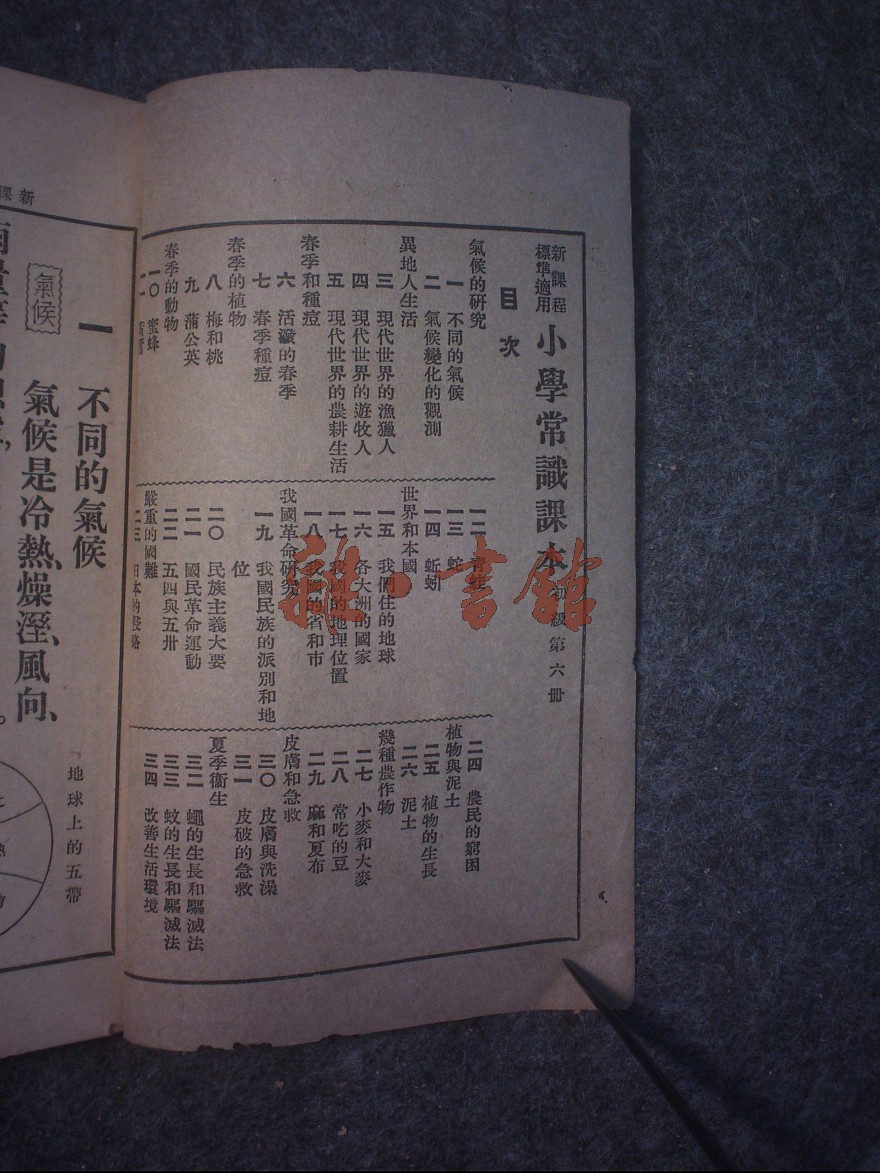 新課程
標準適用
小學常識課本 初級第六冊
目次
氣候的研究
一 不同的氣候
二 氣候變化的觀測
異地人生活
三 現代世界的漁獵人
四 現代世界的遊牧人
五 現代世界的農耕生活
春季和種痘
六 活潑的春季
七 春季種痘
春季的植物
八 梅和桃
九 蒲公英
春季的動物
一〇 蜜蜂
一一
一二 青蛙
一三 蛇
一四 蚯蚓
世界和本國
一五 我們住的地球
一六 各大洲的國家
一七 我國的地理位置
一八 我國的省和市
我國革命研究
一九 我國民族的派別和地
位
二〇 民族主義大要
二一 國民革命運動
二二 五四與五卅
嚴重的國難
二三 日本的侵略
二四 農民的窮困
植物與泥土
二五 植物的生長
二六 泥土
幾種農作物
二七 小麥和大麥
二八 常吃的豆
二九 麻和夏布
皮膚和急救
三〇 皮膚與洗澡
三一 皮破的急救
夏季衞生
三二 蠅的生長和驅滅法
三三 蚊的生長和驅滅法
三四 改善生活環境
雜·書館
新課
一 不同的氣候
氣候
氣候是冷、熱、燥、溼、風向、
地球上的五帶